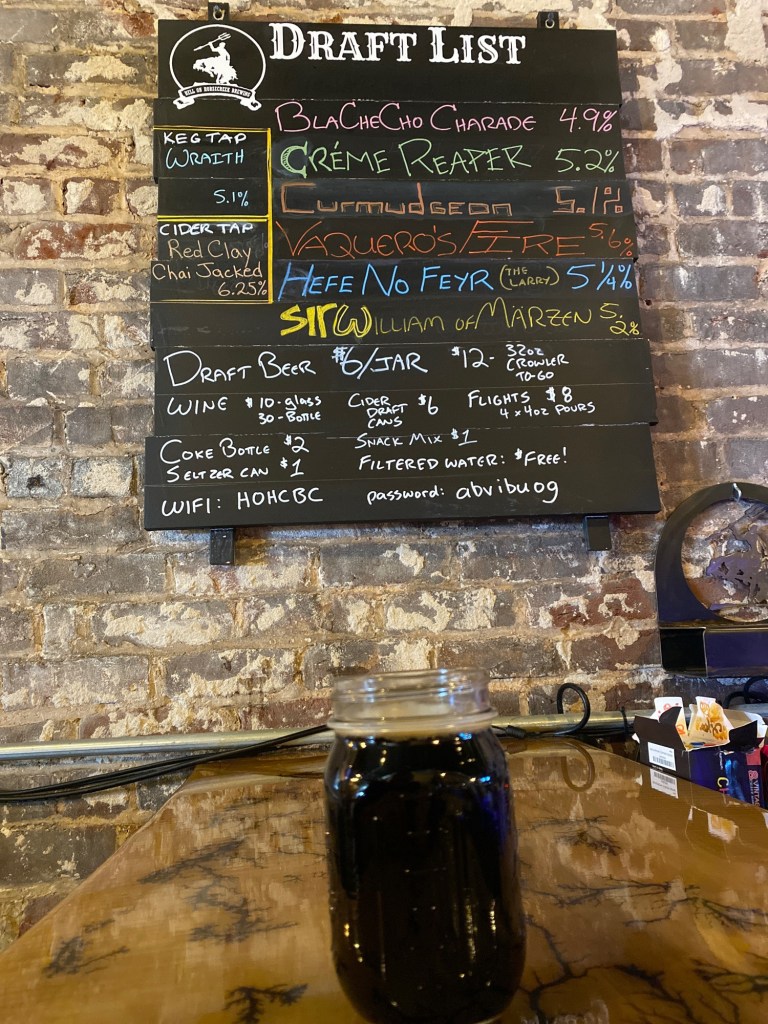 DRAFT LIST
HELL ON HORSECREEK BREWING
BLACHECHO CHARADE 4.9%
CRÉME REAPER 5.2%
CURMUDGEON 5.1%
VAQUERO'S FIRE 5.6%
HEFE NO FEYR (THE LARRY) 5 1/4%
SIR WILLIAM OF MÄRZEN 5.2%
KEG TAP
WRAITH
5.1%
CIDER TAP
Red Clay
Chai Jacked
6.25%
DRAFT BEER $6/JAR $12- 32oz CROWLER TO-GO
WINE $10-glass 30-BOTTLE
CIDER DRAFT CANS $6
FLIGHTS $8 4 x 4oz POURS
COKE BOTTLE $2
SELTZER CAN $1
SNACK MIX $1
FILTERED WATER: $FREE!
WIFI: HOHCBC password: abvibuog